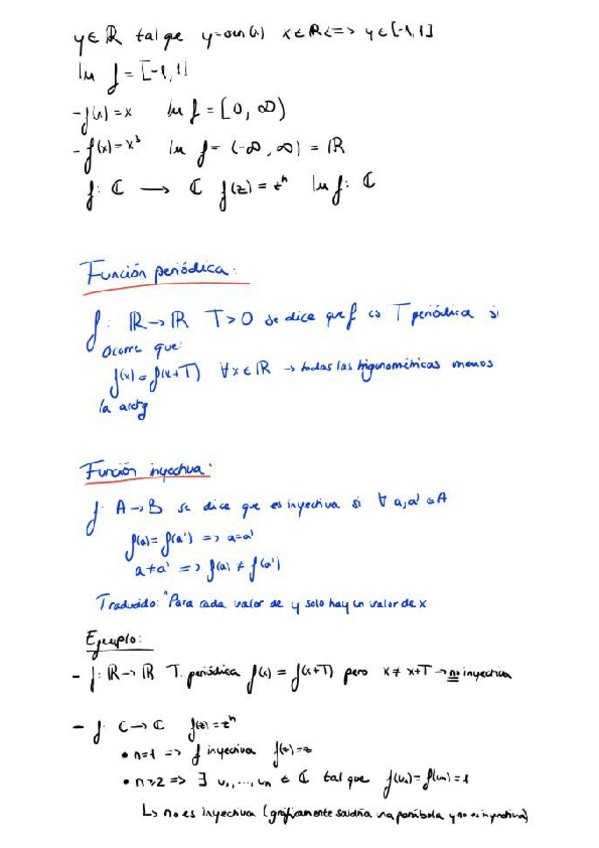 y∈ℝ tal que y=sen(x) x∈ℝ <=> y∈[-1,1]
Im f = [-1,1]
- f(x) = x Im f = [0, ∞)
- f(x) = x³ Im f = (-∞, ∞) = ℝ
f: ℂ → ℂ f(z) = zⁿ Im f: ℂ
Función periódica:
f: ℝ→ℝ T>0 se dice que f es T periódica si
ocurre que:
f(x) = f(x+T) ∀x∈ℝ → todas las trigonométricas menos
la arctg
Función inyectiva:
f: A→B se dice que es inyectiva si ∀ a,a' ∈ A
f(a) = f(a') => a=a'
a≠a' => f(a) ≠ f(a')
Traducido: "Para cada valor de y solo hay un valor de x
Ejemplo:
- f: ℝ→ℝ T. periódica f(x) = f(x+T) pero x≠x+T → no inyectiva
- f: ℂ→ℂ f(z)=zⁿ
• n=1 => f inyectiva f(z)=z
• n≥2 => ∃ u₁,...,uₙ ∈ ℂ tal que f(u₁)=f(uₙ)=1
↳ no es inyectiva (gráficamente saldría una parábola y no es inyectiva)